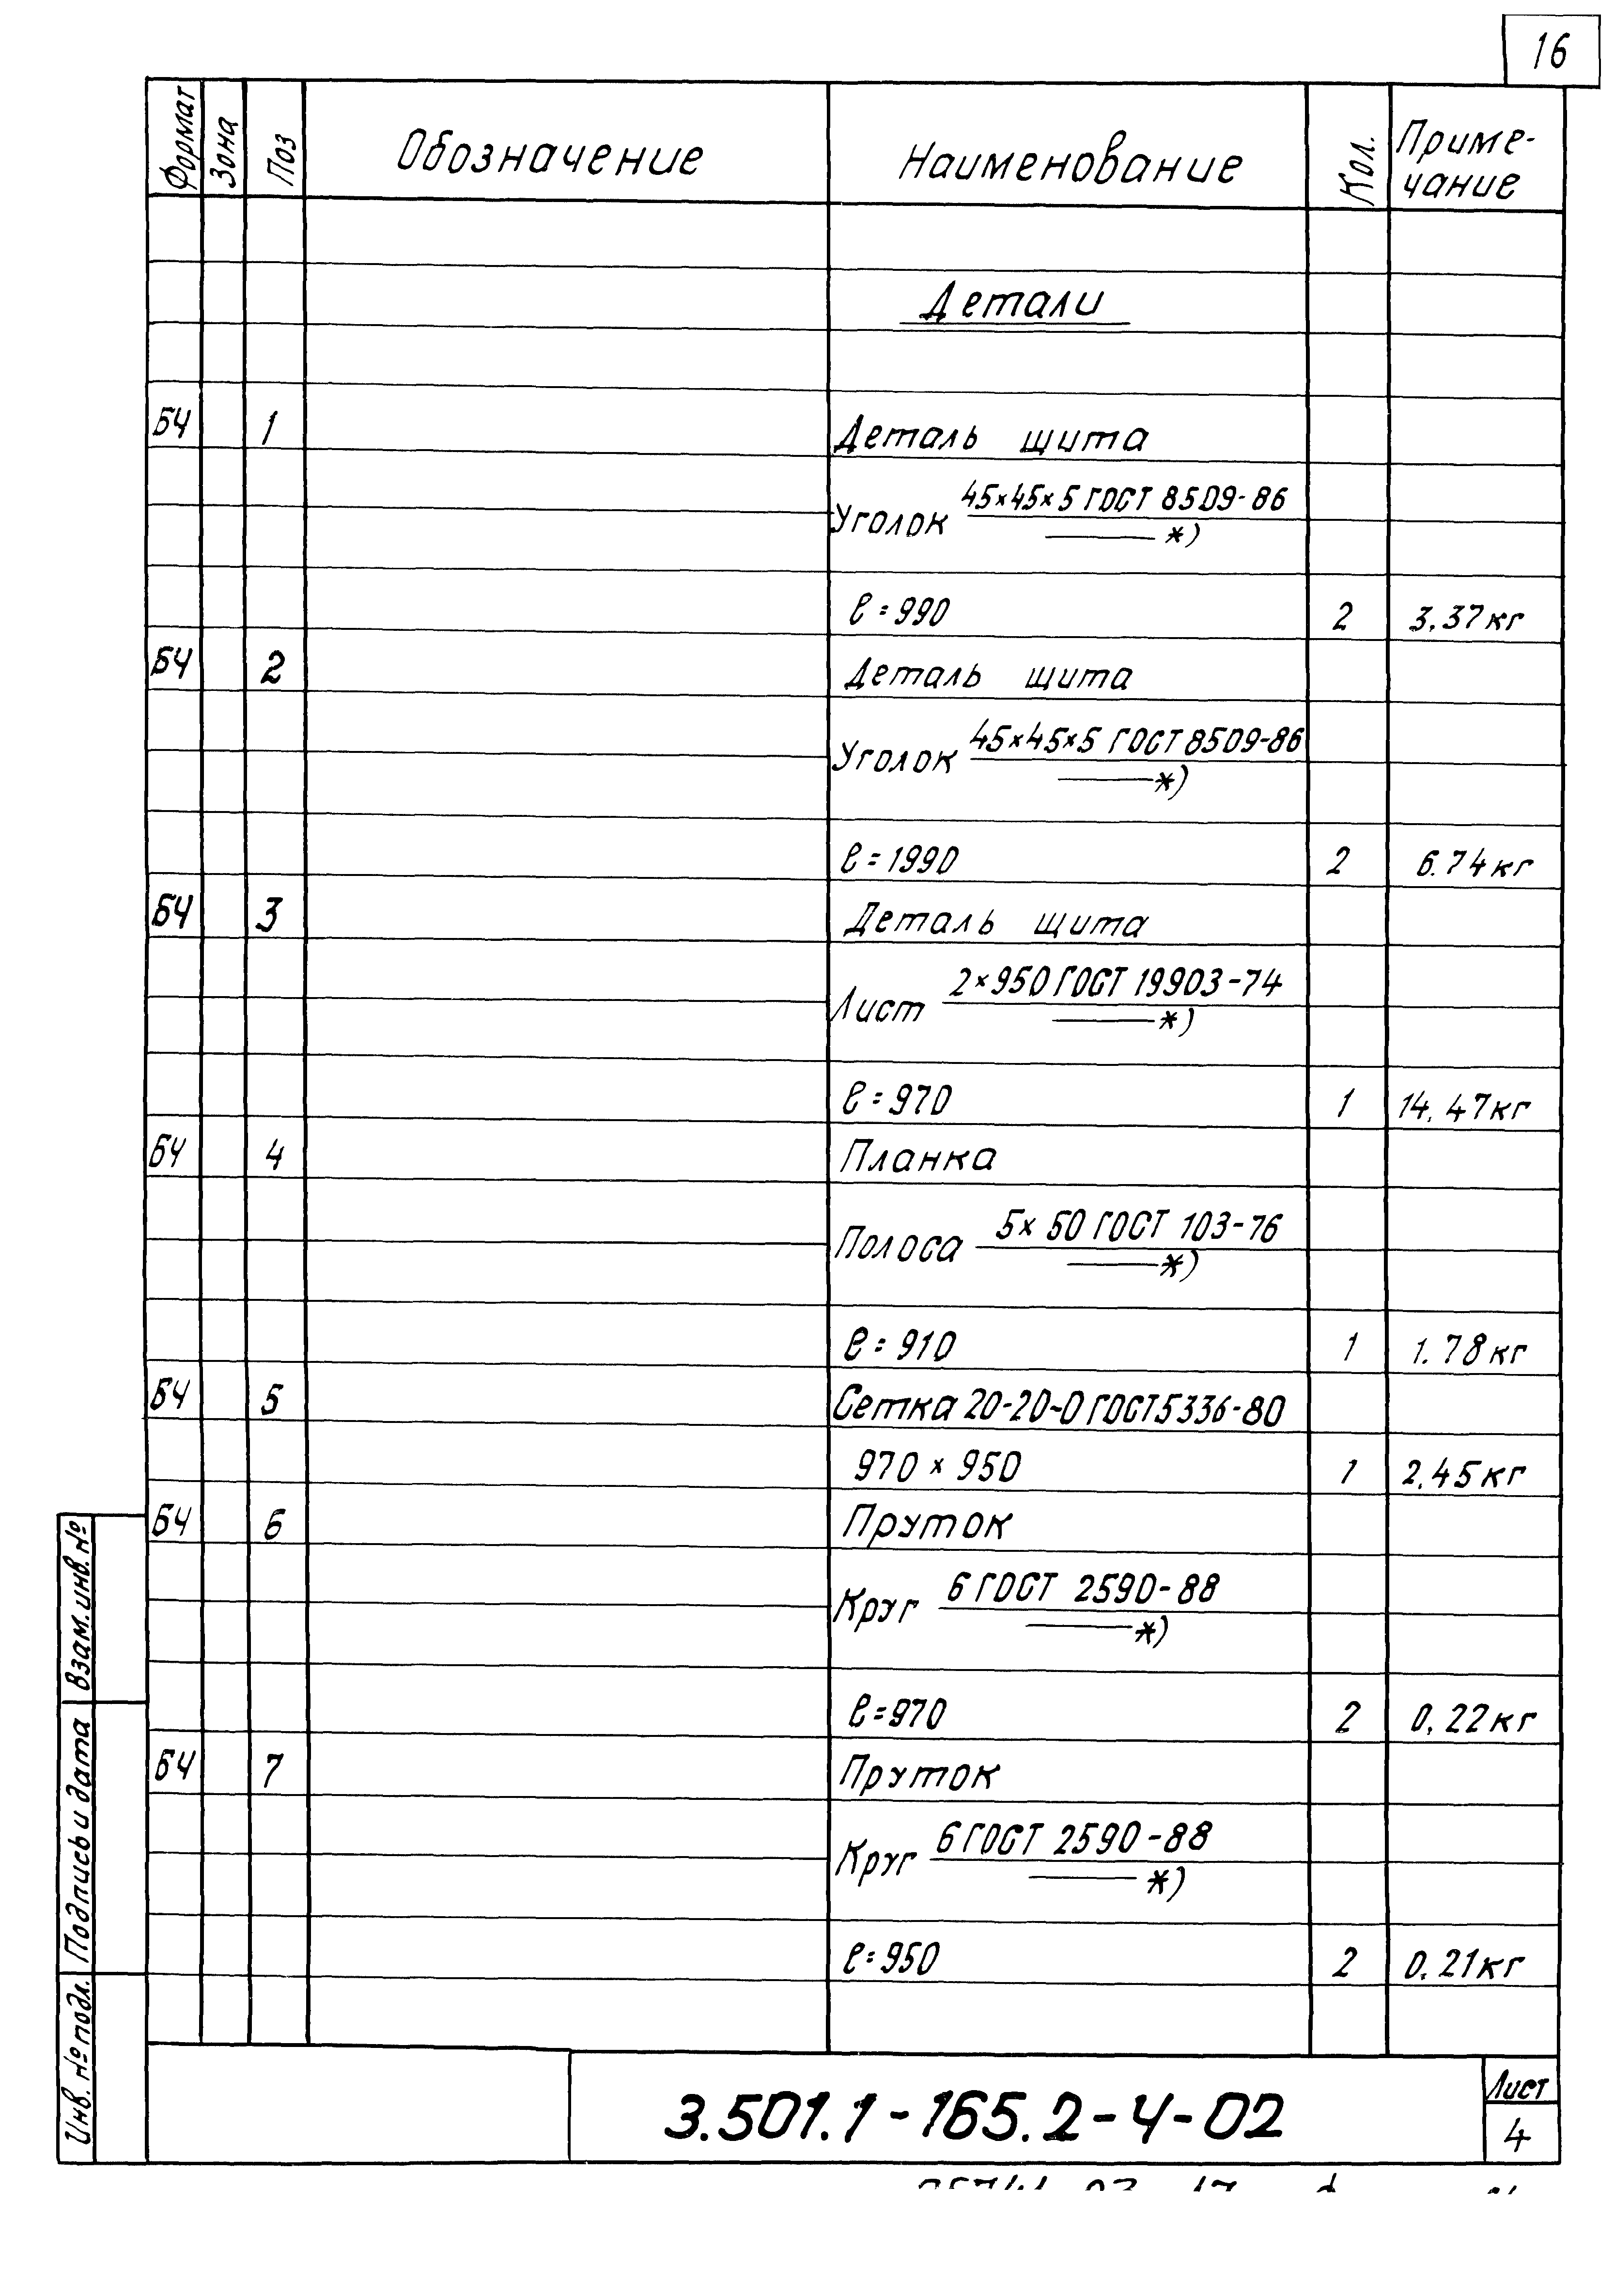 16
Формат Зона Поз Обозначение Наименование Кол. Приме-
чание
Детали
БЧ 1 Деталь щита
Уголок 45×45×5 ГОСТ 8509-86
*)
ℓ=990 2 3,37кг
БЧ 2 Деталь щита
Уголок 45×45×5 ГОСТ 8509-86
*)
ℓ=1990 2 6.74кг
БЧ 3 Деталь щита
Лист 2×950 ГОСТ 19903-74
*)
ℓ=970 1 14,47кг
БЧ 4 Планка
Полоса 5×50 ГОСТ 103-76
*)
ℓ=910 1 1.78кг
БЧ 5 Сетка 20-20-0 ГОСТ 5336-80
970×950 1 2,45кг
БЧ 6 Пруток
Круг 6 ГОСТ 2590-88
*)
ℓ=970 2 0,22кг
БЧ 7 Пруток
Круг 6 ГОСТ 2590-88
*)
ℓ=950 2 0.21кг
Взам.инв.№
Подпись и дата
Инв. № подл.
3.501.1-165.2-4-02
Лист
4